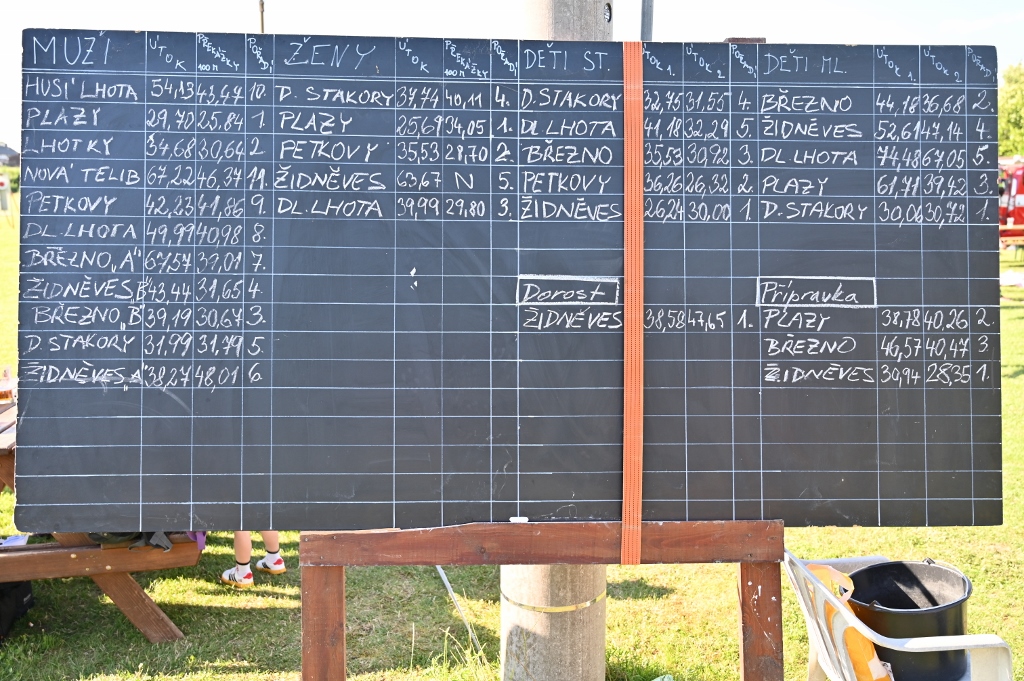 MUŽI ÚTOK PŘEKÁŽKY 100 M POŘADÍ ŽENY ÚTOK PŘEKÁŽKY 100 M POŘADÍ DĚTI ST. ÚTOK 1. ÚTOK 2 POŘADÍ DĚTI ML. ÚTOK 1. ÚTOK 2 POŘADÍ
HUSÍ LHOTA 54,13 43,47 10. D. STAKORY 37,74 40,11 4. D.STAKORY 32,75 31,55 4. BŘEZNO 44,18 36,68 2.
PLAZY 29,70 25,84 1. PLAZY 25,69 34,05 1. DL.LHOTA 41,18 32,29 5. ŽIDNĚVES 52,61 47,14 4.
LHOTKY 34,68 30,64 2. PETKOVY 35,53 28,70 2. BŘEZNO 35,53 30,92 3. DL.LHOTA 74,48 67,05 5.
NOVÁ TELIB 67,22 46,37 11. ŽIDNĚVES 63,67 N 5. PETKOVY 36,26 26,32 2. PLAZY 61,71 39,42 3.
PETKOVY 42,23 41,86 9. DL.LHOTA 39,99 29,80 3. ŽIDNĚVES 26,24 30,00 1. D.STAKORY 30,06 30,72 1.
DL.LHOTA 49,99 40,98 8.
BŘEZNO „A" 67,57 39,01 7.
ŽIDNĚVES „B" 43,44 31,65 4. Dorost Přípravka
BŘEZNO „B" 39,19 30,67 3. ŽIDNĚVES 38,58 47,65 1. PLAZY 38,78 40,26 2.
D.STAKORY 31,99 31,79 5. BŘEZNO 46,57 40,47 3
ŽIDNĚVES „A" 38,27 48,01 6. ŽIDNĚVES 30,94 28,35 1.